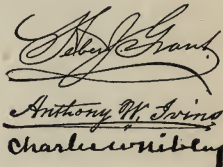 Heber J. Grant
Anthony W. Ivins
Charles W. Nibley